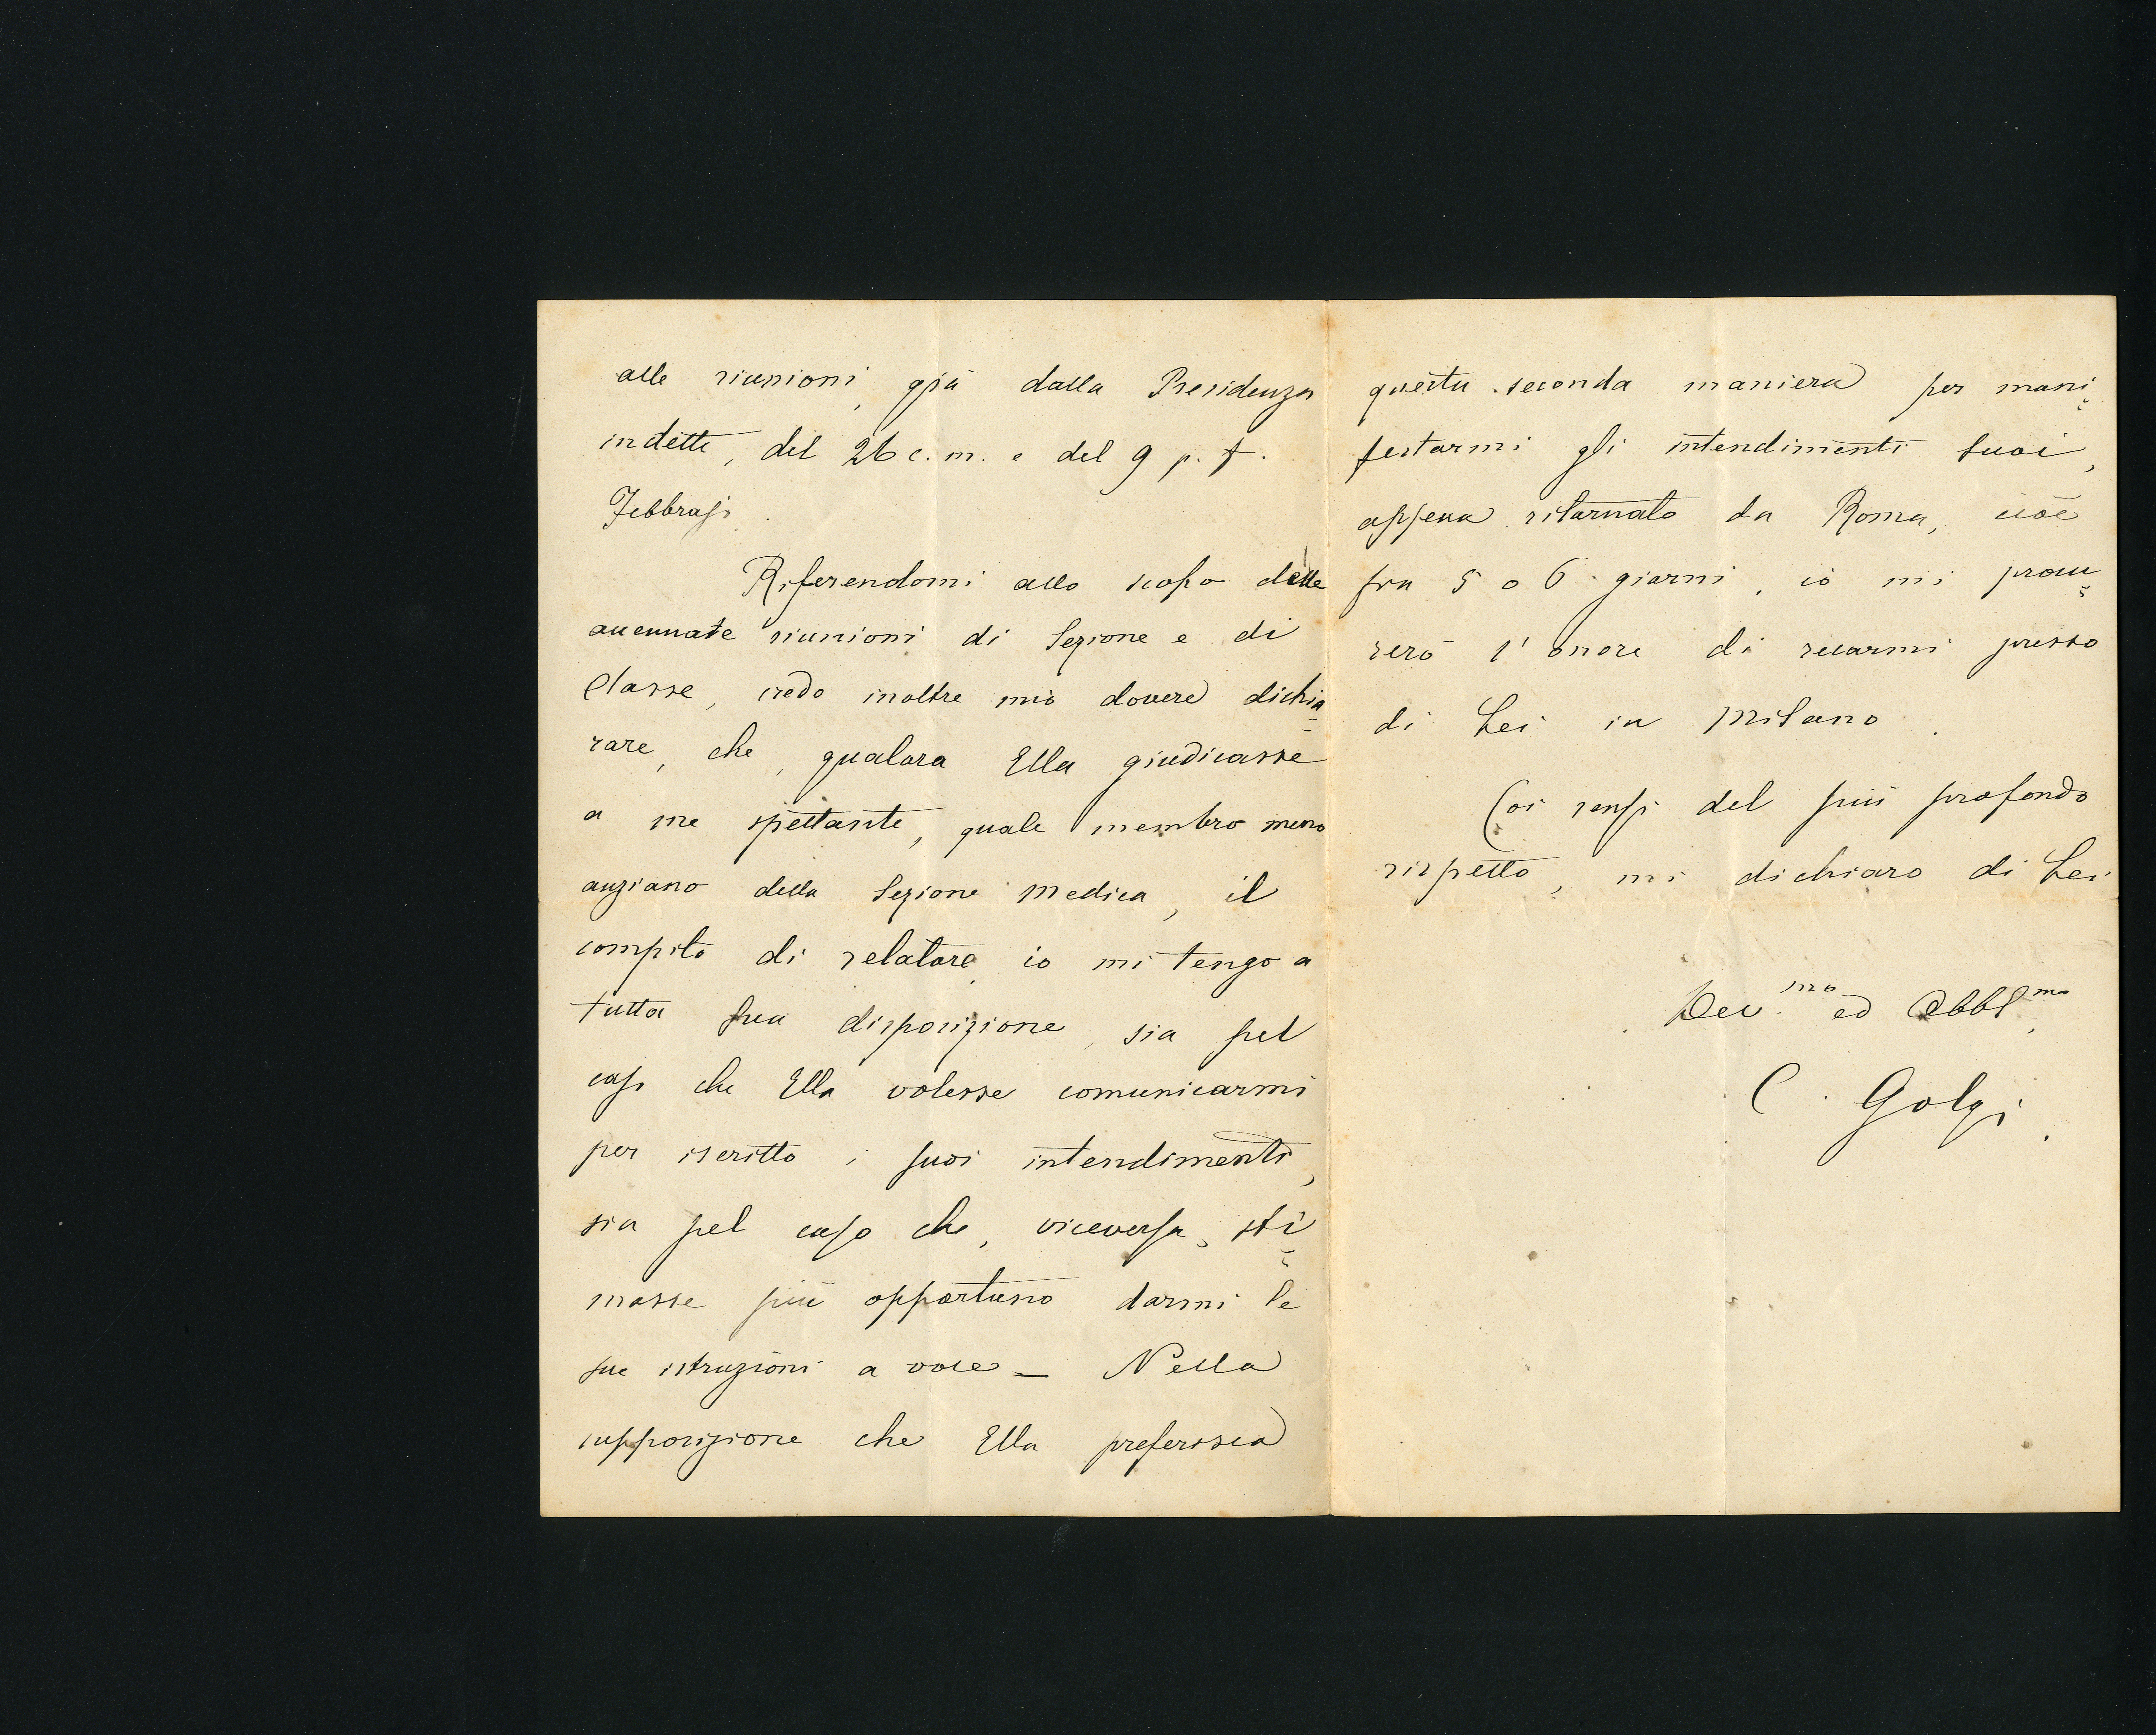 alle riunioni, già dalla Presidenza
indette, del 26 c. m. e del 9 p. f.
Febbrajo.
Riferendomi allo scopo delle
accennate riunioni di Sezione e di
Classe, credo inoltre mio dovere dichia-
rare, che, qualora Ella giudicasse
a me spettante, quale membro meno
anziano della Sezione Medica, il
compito di relatore, io mi tengo a
tutta Sua disposizione, sia pel
caso che Ella volesse comunicarmi
per iscritto i suoi intendimenti,
sia pel caso che, viceversa, sti-
masse più opportuno darmi le
sue istruzioni a voce – Nella
supposizione che Ella preferisca
questa seconda maniera per mani-
festarmi gli intendimenti suoi,
appena ritornato da Roma, cioè
fra 5 o 6 giorni, io mi procu-
rerò l'onore di recarmi presso
di Lei in Milano.
Coi sensi del più profondo
rispetto, mi dichiaro di Lei
Dev.mo ed Obbl.mo
C. Golgi.